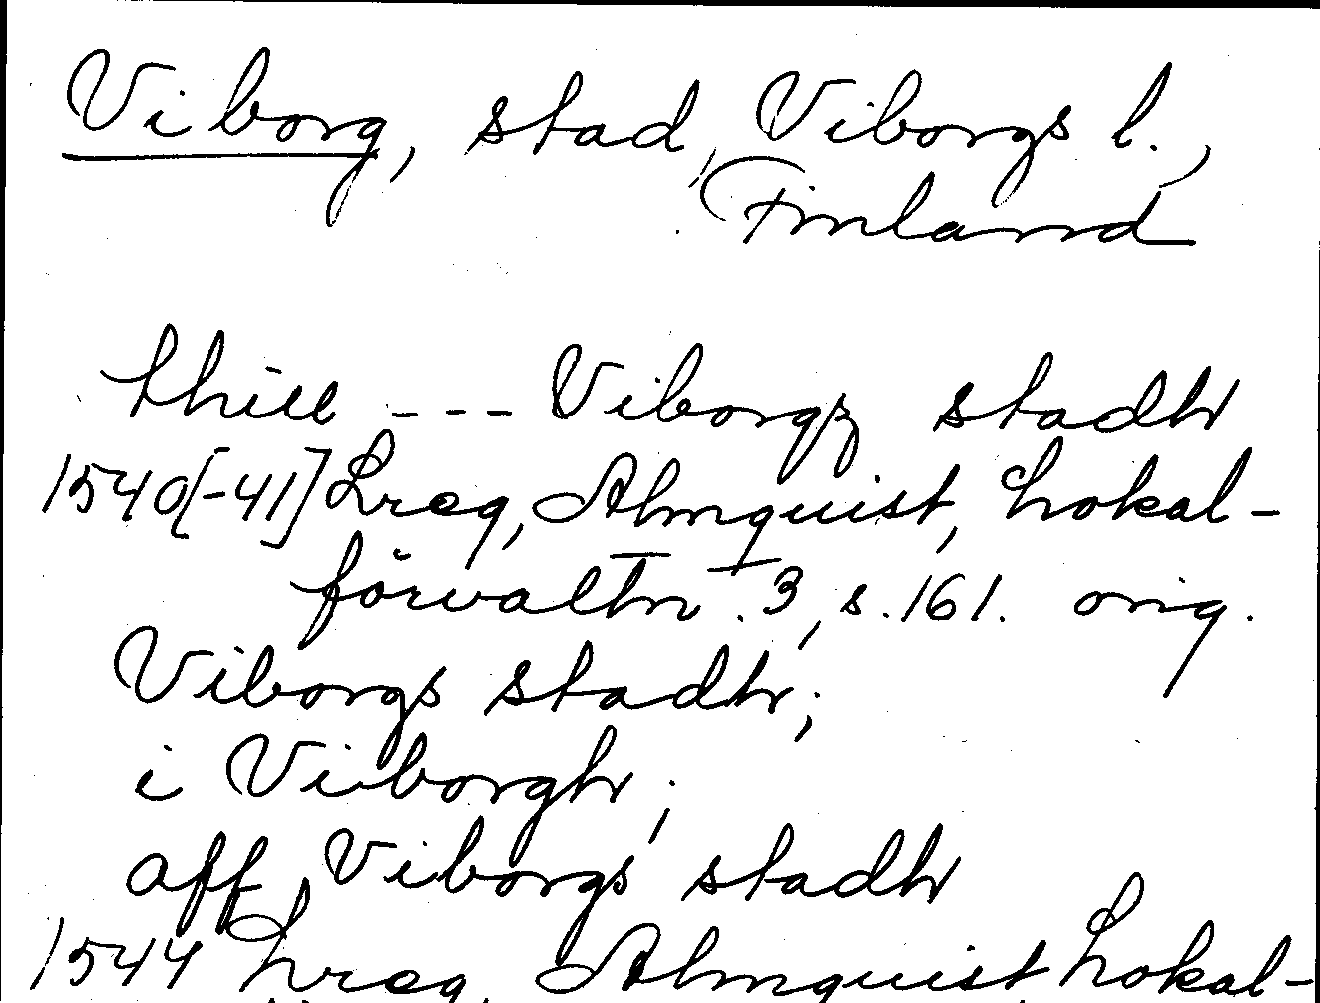 Viborg, stad, Viborgs l.,
Finland
thill --- Viborgz stadh
1540[-41] Lreg, Almquist, Lokal-
förvaltn. 3, s. 161. orig.
Viborgs stadh;
i Viborgh;
aff Viborgs stadh
1544 Lreg, Almquist Lokal-